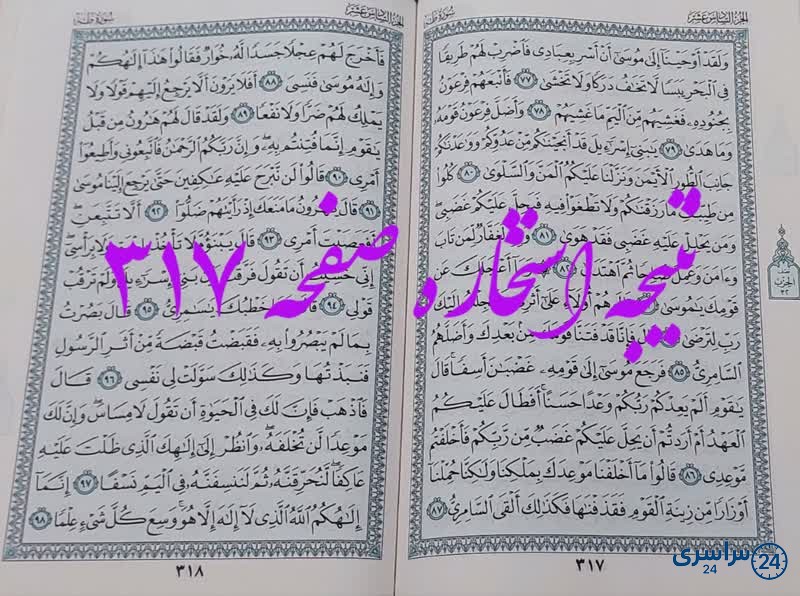 الجزء السادس عشر سورة طه
ولقد أوحينا إلى موسى أن أسر بعبادى فاضرب لهم طريقا
فى البحر يبسا لا تخف دركا ولا تخشى ٧٧ فأتبعهم فرعون
بجنوده فغشيهم من اليم ما غشيهم ٧٨ وأضل فرعون قومه
وما هدى ٧٩ يبنى إسرءيل قد أنجينكم من عدوكم ووعدنكم
جانب الطور الأيمن ونزلنا عليكم المن والسلوى ٨٠ كلوا
من طيبت ما رزقنكم ولا تطغوا فيه فيحل عليكم غضبى
ومن يحلل عليه غضبى فقد هوى ٨١ لغفار لمن تاب
وءامن وعمل صلحا ثم اهتدى ٨٢ وما أعجلك عن
قومك يموسى هم أولاء على أثرى وعجلت إليك
رب لترضى قال فإنا قد فتنا قومك من بعدك وأضلهم
السامرى ٨٥ فرجع موسى إلى قومه غضبن أسفا قال
يقوم ألم يعدكم ربكم وعدا حسنا أفطال عليكم
العهد أم أردتم أن يحل عليكم غضب من ربكم فأخلفتم
موعدى ٨٦ قالوا ما أخلفنا موعدك بملكنا ولكنا حملنا
أوزارا من زينة القوم فقذفنها فكذلك ألقى السامرى ٨٧
٣١٧
الجزء السادس عشر سورة طه
فأخرج لهم عجلا جسدا له خوار فقالوا هذا إلهكم
وإله موسى فنسى ٨٨ أفلا يرون ألا يرجع إليهم قولا ولا
يملك لهم ضرا ولا نفعا ٨٩ ولقد قال لهم هرون من قبل
يقوم إنما فتنتم به وإن ربكم الرحمن فاتبعونى وأطيعوا
أمرى ٩٠ قالوا لن نبرح عليه عكفين حتى يرجع إلينا موسى
٩١ قال يهرون ما منعك إذ رأيتهم ضلوا ٩٢ ألا تتبعن
أفعصيت أمرى ٩٣ قال يبنؤم لا تأخذ ولا برأسى
إنى خشيت أن تقول فرقت بين بنى إسرءيل ولم ترقب
قولى ٩٤ قال فما خطبك يسمرى ٩٥ قال بصرت
بما لم يبصروا به فقبضت قبضة من أثر الرسول
فنبذتها وكذلك سولت لى نفسى ٩٦ قال
فاذهب فإن لك فى الحيوة أن تقول لا مساس وإن لك
موعدا لن تخلفه وانظر إلى إلهك الذى ظلت عليه
عاكفا لنحرقنه ثم لننسفنه فى اليم نسفا ٩٧ إنما
إلهكم الله الذى لا إله إلا هو وسع كل شىء علما ٩٨
٣١٨
نتیجه استخاره صفحه ٣١٧
سراسری
24
24